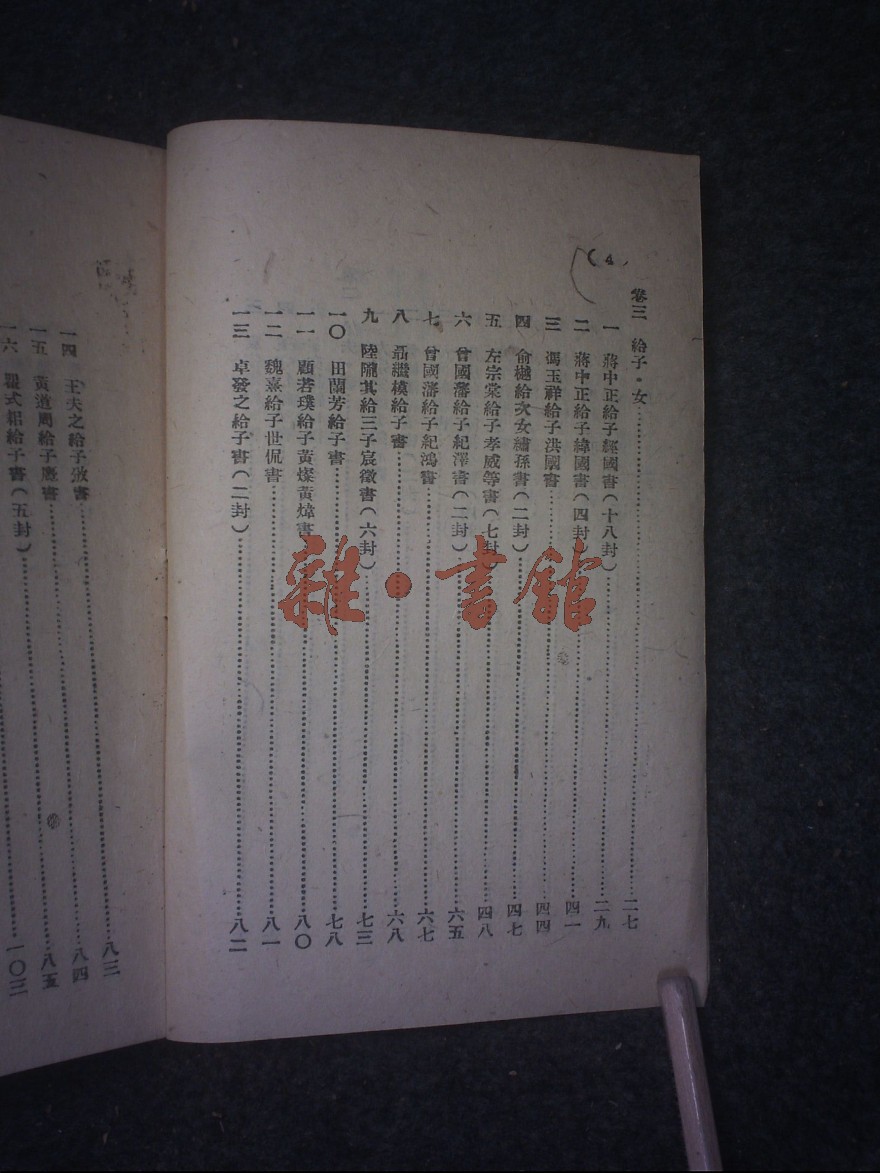 (4)
卷三 給子・女……二七
一 蔣中正給子經國書(十八封)……二九
二 蔣中正給子緯國書(四封)……四一
三 馮玉祥給子洪國書……四四
四 俞樾給次女繡孫書(二封)……四七
五 左宗棠給子孝威等書(七封)……四八
六 曾國藩給子紀澤書(二封)……六五
七 曾國藩給子紀鴻書……六七
八 聶繼模給子書……六八
九 陸隴其給三子宸徵書(六封)……七三
一〇 田蘭芳給子書……七八
一一 顧若璞給子黃燦黃煒書……八〇
一二 魏禧給子世侃書……八一
一三 卓發之給子書(二封)……八二
一四 王夫之給子攽書……八三
一五 黃道周給子麑書……八四
一六 瞿式耜給子書(五封)……八五
一〇三
雜・書館